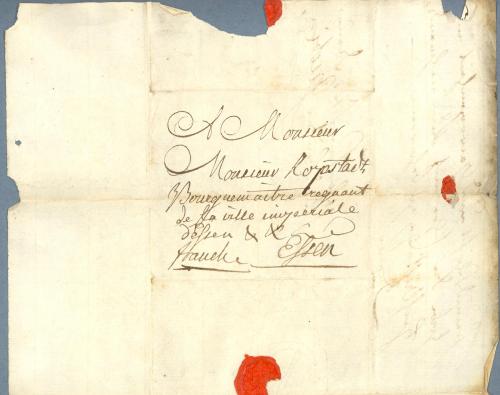 A Monsieur
Monsieur Kopstadt,
Bourguemaitre regnant
de la ville imperiale
d'Essen & &
franch. Essen